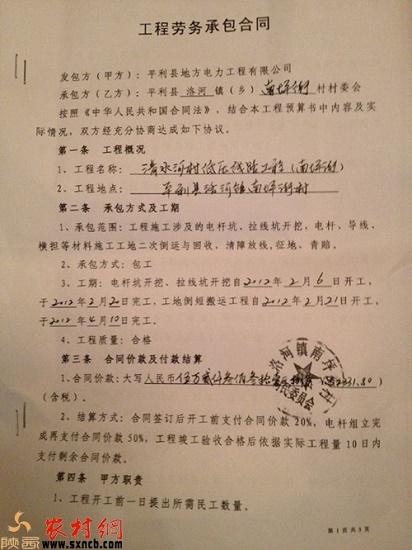 工程劳务承包合同
发包方（甲方）：平利县地方电力工程有限公司
承包方（乙方）：平利县 洛河 镇（乡） 南坪街 村村委会
按照《中华人民共和国合同法》，结合本工程预算书中内容及实
际情况，双方经充分协商达成如下协议。
第一条 工程概况
1、工程名称： 清水河村低压线路工程（南坪街）
2、工程地点： 平利县洛河镇南坪街村
第二条 承包方式及工期
1、承包范围：工程施工涉及的电杆坑、拉线坑开挖，电杆、导线、
横担等材料施工工地二次倒运与回收，清障放线，征地、青赔。
2、承包方式：包工
3、工期：电杆坑开挖、拉线坑开挖自2012年2月6日开工，
于2012年2月20日完工，工地倒短搬运工程自2012年2月21日开工，
于2012年4月10日完工。
4、工程质量：合格
第三条 合同价款及付款结算
1、合同价款：大写人民币伍万贰仟叁佰叁拾
（含税）。
2、结算方式：合同签订后开工前支付合同价款 20%，电杆组立完
成再支付合同价款 50%，工程竣工验收合格后依据实际工程量 10 日内
支付剩余合同价款。
第四条 甲方职责
1、工程开工前一日提出所需民工数量。
第 1 页 共 3 页
洛河镇南坪街村村民委员会
陕西 农村网
www.sxncb.com